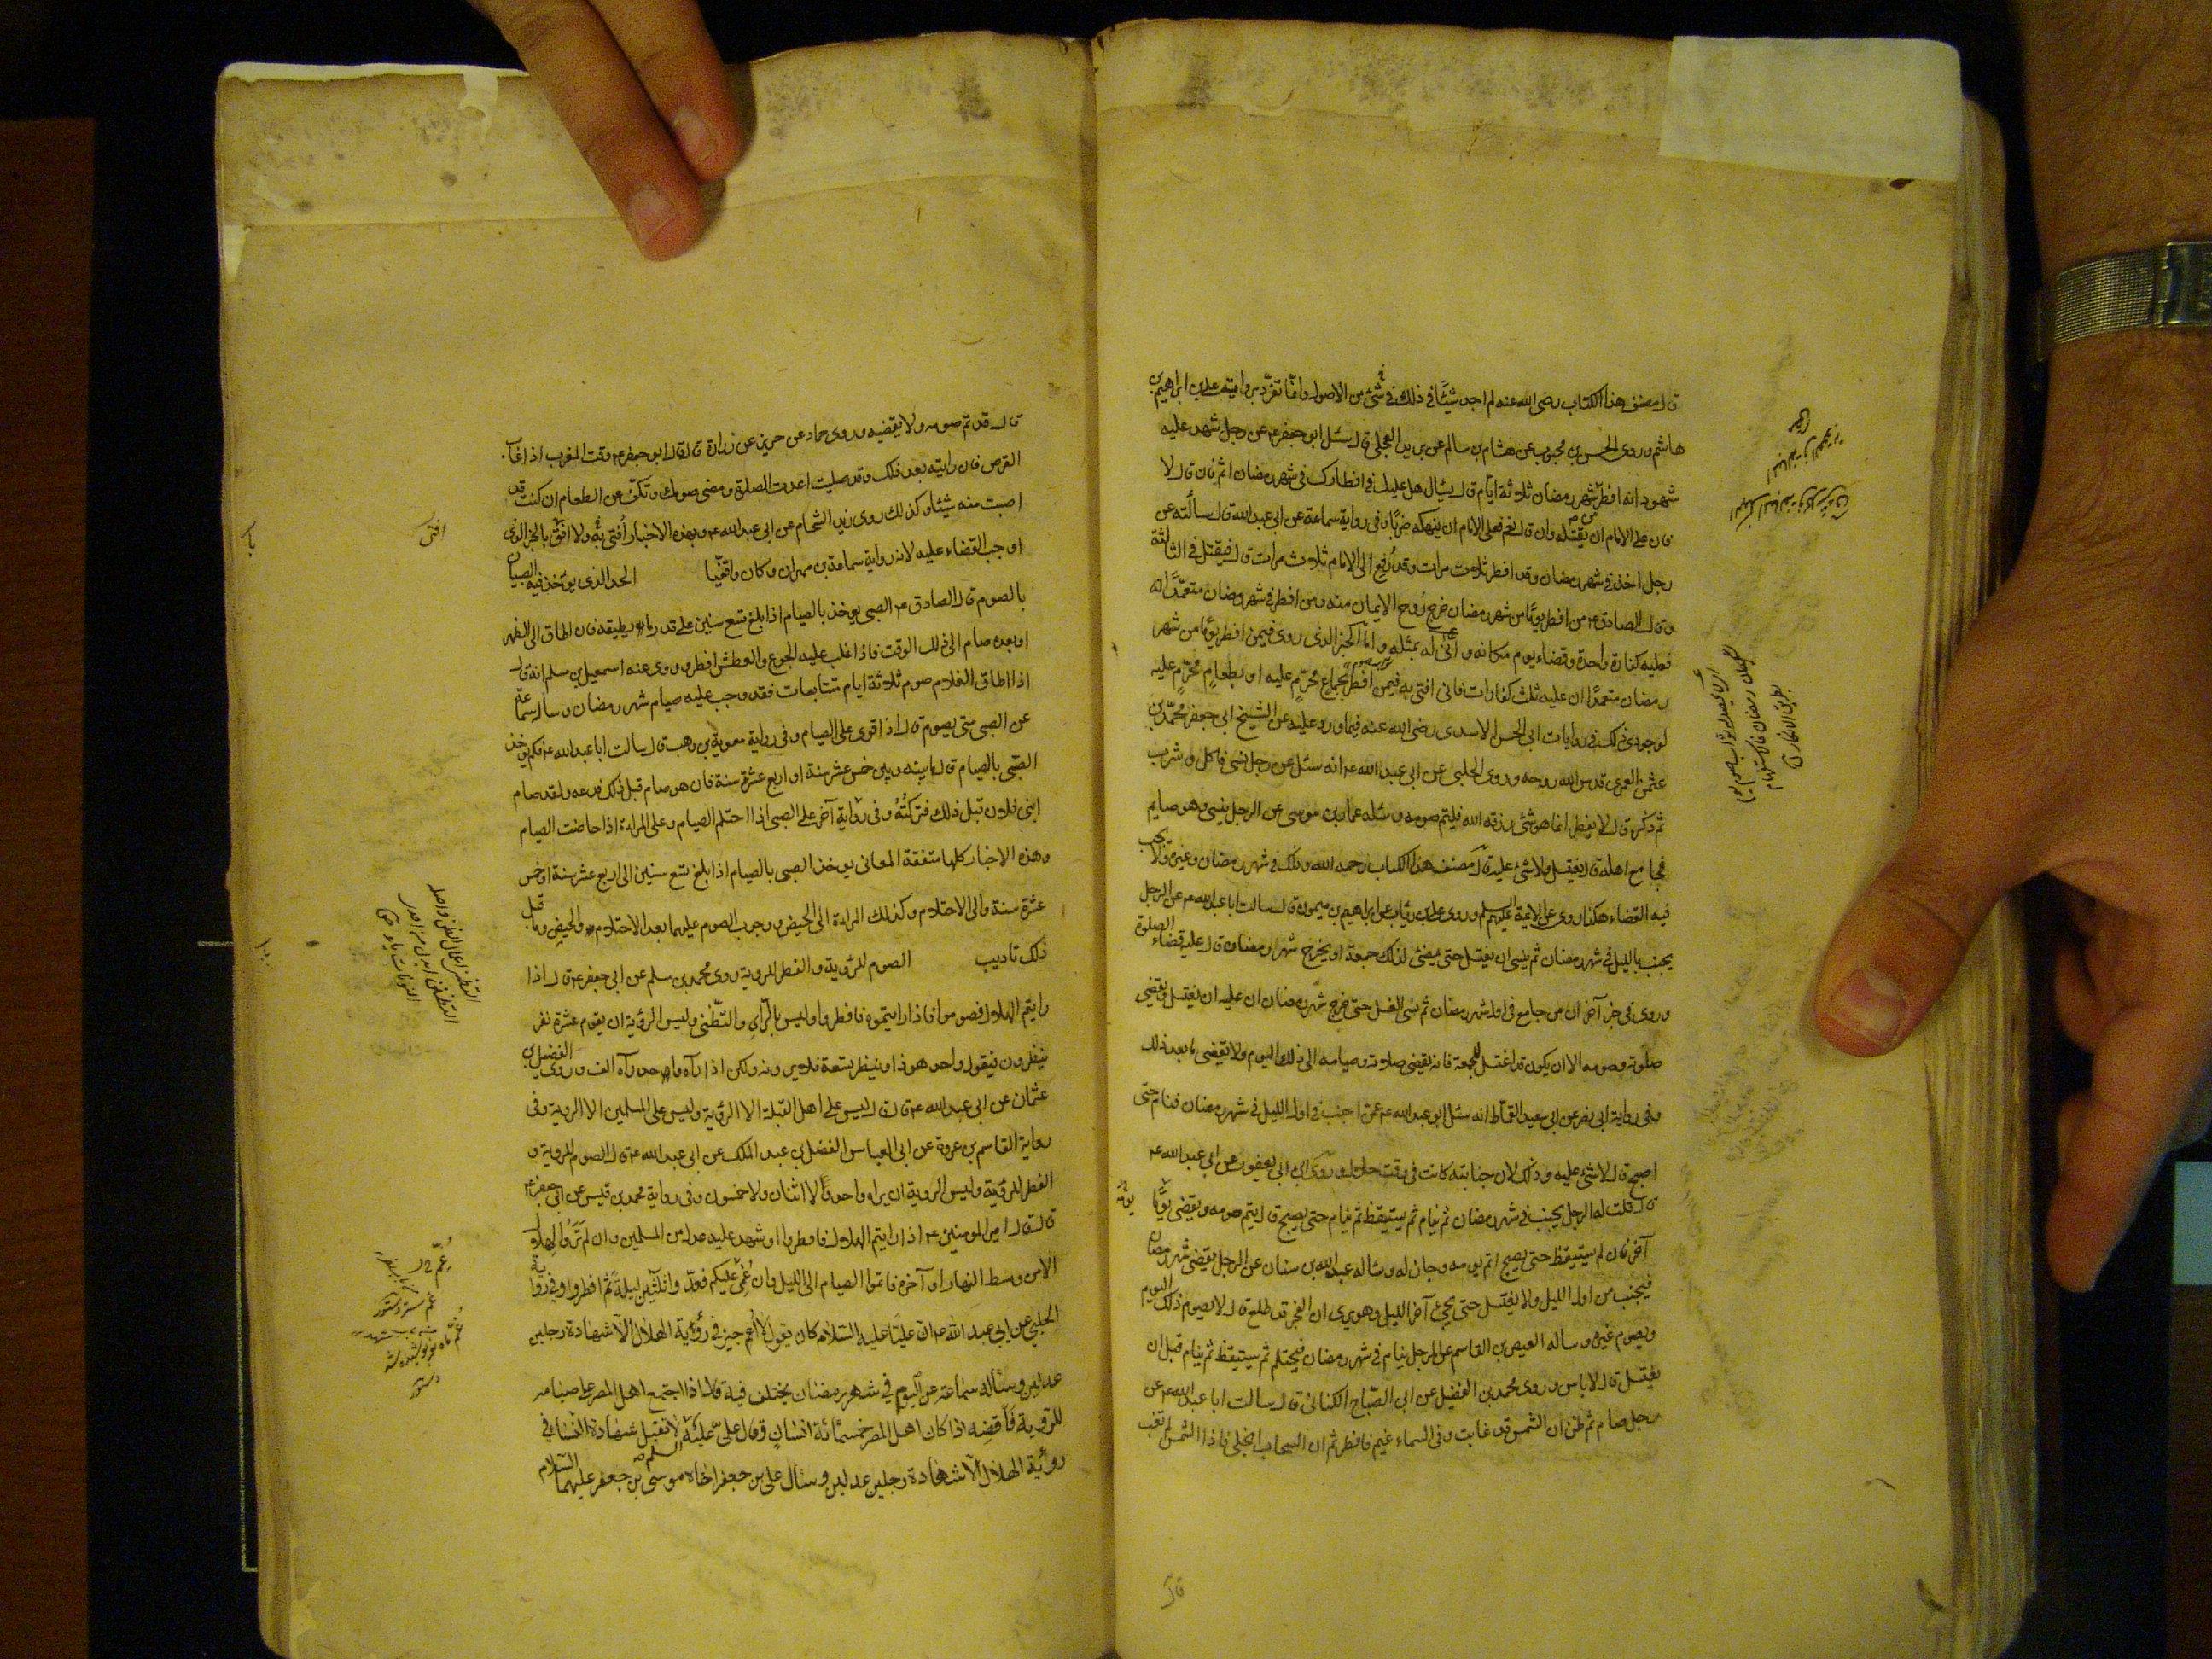 قال مصنف هذا الكتاب رضى الله عنه لم اجد شيئا في ذلك في شئ من الاصول وانما تفرد بروايته على بن ابراهيم بن
هاشم وروى الحسن بن محبوب عن هشام بن سالم عن بريد العجلى قال سئل ابو جعفر ع عن رجل شهد عليه
شهود انه افطر شهر رمضان ثلاثة ايام قال يسأل هل عليك في افطارك في شهر رمضان اثم فان قال لا
فان على الامام ان يقتله وان قال نعم فعلى الامام ان ينهكه ضربا وفي رواية سماعة عن ابى عبدالله قال سألته عن
رجل اخذ في شهر رمضان وقد افطر ثلاث مرات وقد رفع الى الامام ثلاث مرات قال فيقتل في الثالثة
وقال الصادق ع من افطر يوما من شهر رمضان خرج روح الايمان منه ومن افطر في شهر رمضان متعمدا
فعليه كفارة واحدة وقضاء يوم مكانه وانى له بمثله واما الخبر الذى روى فيمن افطر يوما من شهر
رمضان متعمدا ان عليه ثلث كفارات فانى افتى به فيمن افطر بجماع محرم عليه او بطعام محرم عليه
لوجود ذلك في روايات ابى الحسن الاسدى رضى الله عنه فيما ورد عليه عن الشيخ ابى جعفر محمد بن
عثمن العمرى قدس الله روحه وروى الحلبى عن ابى عبدالله ع انه سئل عن رجل نسى فاكل وشرب
ثم ذكر قال لا يفطر انما هو شئ رزقه الله فليتم صومه وسئله عمار بن موسى عن الرجل ينسى وهو صايم
فجامع اهله قال يغتسل ولا شئ عليه قال مصنف هذا الكتاب رحمه الله وذلك في شهر رمضان وغيره ولا يجب
فيه القضاء هكذا روى عن الايمة عليهم السلم وروى على بن رئاب عن ابراهيم بن ميمون قال سالت ابا عبدالله ع عن الرجل
يجنب بالليل في شهر رمضان ثم ينسى ان يغتسل حتى يمضى لذلك جمعة او يخرج شهر رمضان قال عليه قضاء الصلوة
وروى في خبر آخر ان من جامع في اول شهر رمضان ثم نسى الغسل حتى خرج شهر رمضان ان عليه ان يغتسل ويقضى
صلوته وصومه الا ان يكون قد اغتسل للجمعة فانه يقضى صلاته وصيامه الى ذلك اليوم ولا يقضى ما بعد ذلك
وفى رواية ابى نصر عن ابى سعيد القماط انه سئل ابو عبدالله ع عمن اجنب في اول الليل في شهر رمضان فنام حتى
اصبح قال لا شئ عليه وذلك لان جنابته كانت في وقت حلال وروى ابن ابى يعفور عن ابى عبدالله ع
قال قلت له الرجل يجنب في شهر رمضان ثم ينام ثم يستيقظ ثم ينام حتى يصبح قال يتم صومه ويقضى يوما
آخر فان لم يستيقظ حتى يصبح اتم يومه وجاز له وسأله عبدالله بن سنان عن الرجل يقضى شهر رمضان
فيجنب من اول الليل ولا يغتسل حتى يجئ آخر الليل وهو يرى ان الفجر قد طلع قال لا يصوم ذلك اليوم
ويصوم غيره وساله العيص بن القاسم عن الرجل ينام في شهر رمضان فيحتلم ثم يستيقظ ثم ينام قبل ان
يغتسل قال لا باس وروى محمد بن الفضيل عن ابى الصباح الكنانى قال سالت ابا عبدالله ع عن
رجل صام ثم ظن ان الشمس قد غابت وفى السماء غيم فافطر ثم ان السحاب انجلى فاذا الشمس لم تغب
قال
قال قد تم صومه ولا يقضيه وروى حماد عن حريز عن زرارة قال قال ابو جعفر ع وقت المغرب اذا غاب
القرص فان رايته بعد ذلك وقد صليت اعدت الصلوة ومضى صومك وتكف عن الطعام ان كنت قد
اصبت منه شيئا وكذلك روى زيد الشحام عن ابى عبدالله ع وبهذه الاخبار افتى ولا افتى بالخبر الذى
اوجب القضاء عليه لانه رواية سماعة بن مهران وكان واقفيا الحد الذى يؤخذ فيه الصبيان
بالصوم قال الصادق ع الصبى يوخذ بالصيام اذا بلغ تسع سنين على قدر ما يطيقه فان اطاق الى الظهر
او بعده صام الى ذلك الوقت فاذا غلب عليه الجوع والعطش افطر وروى عنه اسمعيل بن مسلم انه قال
اذا اطاق الغلام صوم ثلاثة ايام متتابعات فقد وجب عليه صيام شهر رمضان وساله سماعة
عن الصبى متى يصوم قال اذا قوى على الصيام وفى رواية معوية بن وهب قال سالت ابا عبدالله ع في كم يؤخذ
الصبى بالصيام قال ما بينه وبين خمس عشر سنة او اربع عشرة سنة فان هو صام قبل ذلك فدعه ولقد صام
ابنى فلان قبل ذلك فتركته وفى رواية آخر على الصبى اذا احتلم الصيام وعلى المراة اذا حاضت الصيام
وهذه الاخبار كلها متفقة المعانى يوخذ الصبى بالصيام اذا بلغ تسع سنين الى اربع عشر سنة او خمس
عشرة سنة والى الاحتلام وكذلك المراة الى الحيض ووجوب الصوم عليهما بعد الاحتلام والحيض وما قبل
ذلك تاديب الصوم للرؤية والفطر للروية روى محمد بن مسلم عن ابى جعفر ع قال اذا
رايتم الهلال فصوموا فاذا رايتموه فافطروا وليس بالراى والتظنى وليس الرؤية ان يقوم عشرة نفر
فينظرون فيقول واحد هو ذا وينظر تسعة فلا يرونه ولكن اذا رآه واحد رآه الف وروى الفضل بن
عثمان عن ابى عبدالله ع قال ليس على اهل القبلة الا الرؤية وليس على المسلمين الا الروية وفى
رواية القاسم بن عروة عن ابى العباس الفضل بن عبد الملك عن ابى عبدالله ع قال الصوم للروية و
الفطر للرؤية وليس الروية ان يراه واحد ولا اثنان ولا خمسون وفى رواية محمد بن قيس عن ابى جعفر ع
قال قال امير المومنين ع اذا رايتم الهلال فافطروا او شهد عليه عدل من المسلمين وان لم تروا الهلال
الا من وسط النهار او آخره فاتموا الصيام الى الليل وان غم عليكم فعدوا ثلثين ليلة ثم افطروا وفى رواية
الحلبى عن ابى عبدالله ع ان عليا عليه السلام كان يقول لا اجيز في رؤية الهلال الا شهادة رجلين
عدلين وسئاله سماعة عن اليوم في شهر رمضان يختلف فيه قال اذا اجتمع اهل المصر على صيامه
للرؤية فاقضه اذا كان اهل المصر خمسمائة انسان وقال على عليه السلم لا تقبل شهادة النساء في
رؤية الهلال الا شهادة رجلين عدلين وسئال على بن جعفر اخاه موسى بن جعفر عليهما السلام